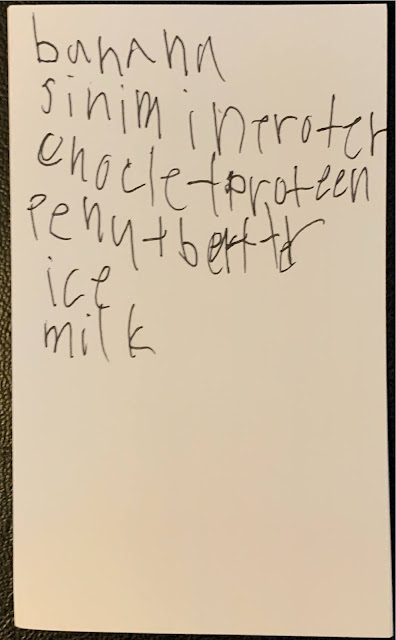 banana
sinimineroter
chocletproteen
penutbettr
ice
milk